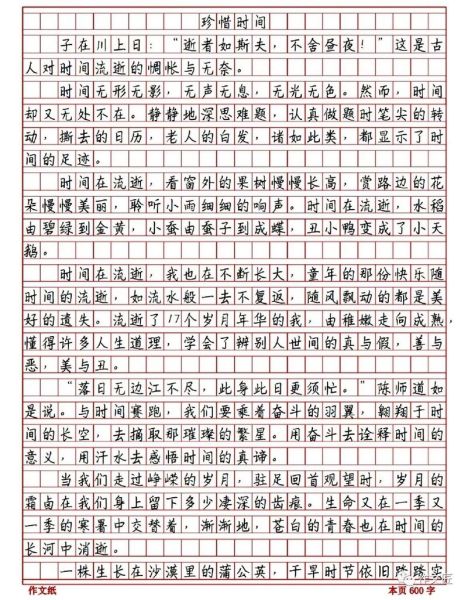 珍惜时间
子在川上曰：“逝者如斯夫，不舍昼夜！”这是古
人对时间流逝的惆怅与无奈。
时间无形无影，无声无息，无光无色。然而，时间
却又无处不在。静静地深思难题，认真做题时笔尖的转
动，撕去的日历，老人的白发，诸如此类，都显示了时
间的足迹。
时间在流逝，看窗外的果树慢慢长高，赏路边的花
朵慢慢美丽，聆听小雨细细的响声。时间在流逝，水稻
由碧绿到金黄，小蚕由蚕子到成蝶，丑小鸭变成了小天
鹅。
时间在流逝，我也在不断长大，童年的那份快乐随
时间的流逝，如流水般一去不复返，随风飘动的都是美
好的遗失。流逝了17个岁月年华的我，由稚嫩走向成熟，
懂得许多人生道理，学会了辨别人世间的真与假，善与
恶，美与丑。
“落日无边江不尽，此身此日更须忙。”陈师道如
是说。与时间赛跑，我们要乘着奋斗的羽翼，翱翔于时
间的长空，去摘取那璀璨的繁星。用奋斗去诠释时间的
意义，用汗水去感悟时间的真谛。
当我们走过峥嵘的岁月，驻足回首观望时，岁月的
霜卤在我们身上留下多少凄深的齿痕。生命又在一季又
一季的寒暑中交替着，渐渐地，苍白的青春也在时间的
长河中消逝。
一株生长在沙漠里的蒲公英，干旱时节依旧踏踏实
作文纸
本页600字
作文匠